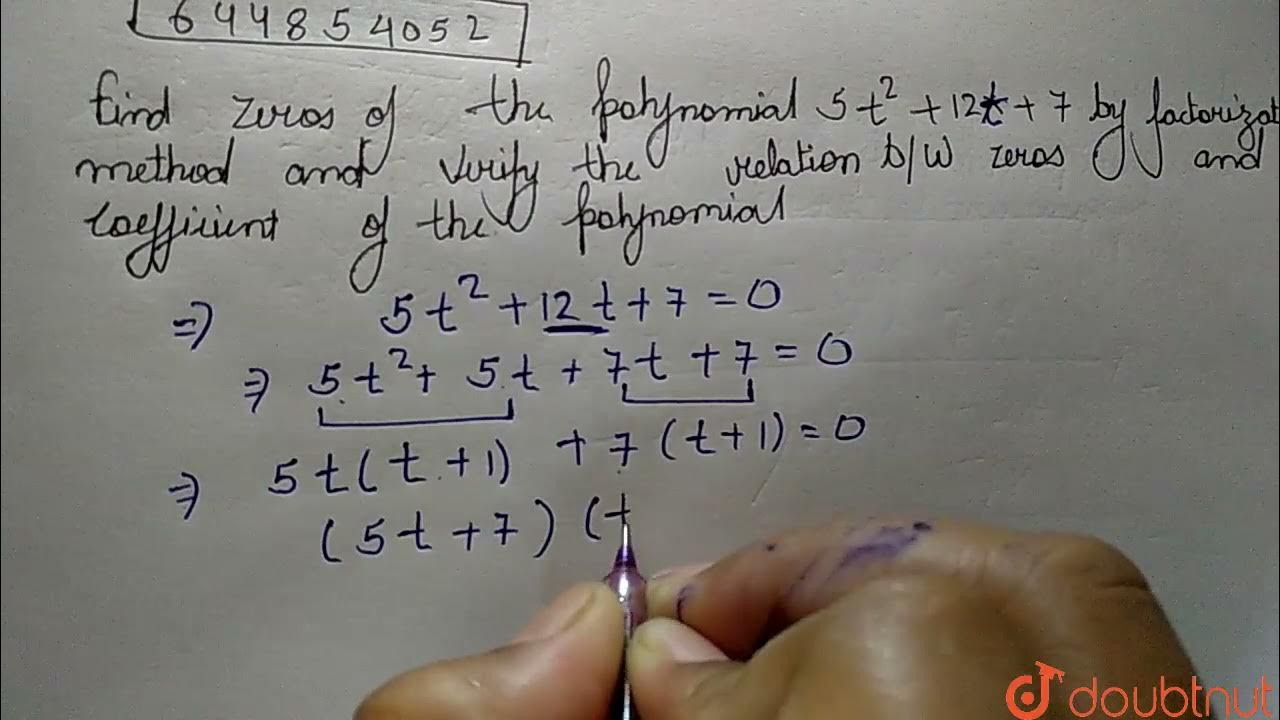 644854052
find zeros of the polynomial 5t² + 12t + 7 by factorizat
method and verify the relation b/w zeros and
coefficient of the polynomial
⇒ 5t² + 12t + 7 = 0
⇒ 5t² + 5t + 7t + 7 = 0
⇒ 5t(t + 1) + 7(t + 1) = 0
(5t + 7) (t
doubtnut